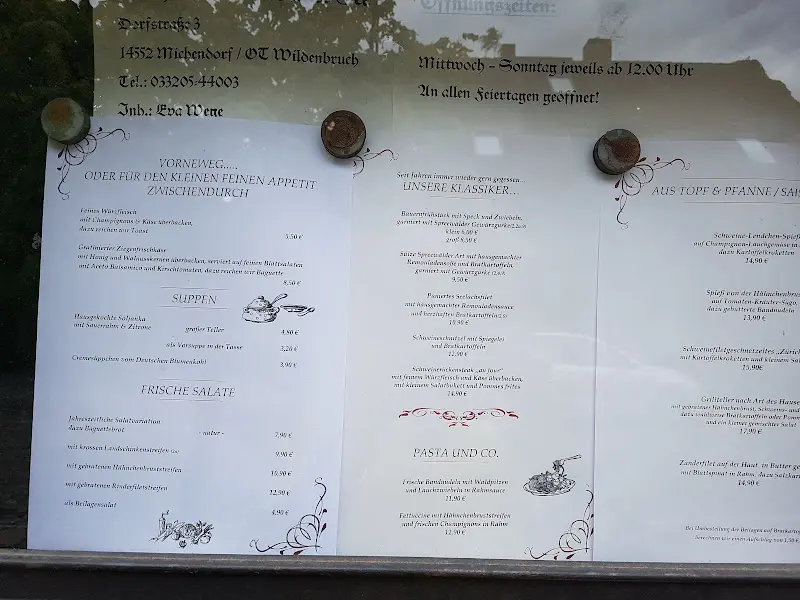 Öffnungszeiten:
Dorfstraße 3
14552 Michendorf / OT Wildenbruch
Tel.: 033205-44003
Inh.: Eva Wege
Mittwoch - Sonntag jeweils ab 12.00 Uhr
An allen Feiertagen geöffnet!
VORNEWEG.....
ODER FÜR DEN KLEINEN FEINEN APPETIT
ZWISCHENDURCH
Feines Würzfleisch
mit Champignons & Käse überbacken,
dazu reichen wir Toast
5,50 €
Gratinierter Ziegenfrischkäse
mit Honig und Walnusskernen überbacken, serviert auf feinen Blattsalaten
mit Aceto Balsamico und Kirschtomaten, dazu reichen wir Baguette
8,50 €
SUPPEN
Hausgekochte Soljanka
mit Sauerrahm & Zitrone
großer Teller 4,80 €
als Vorsuppe in der Tasse 3,20 €
Cremesüppchen vom Deutschen Blumenkohl 3,90 €
FRISCHE SALATE
Jahreszeitliche Salatvariation
dazu Baguettebrot - natur - 7,90 €
mit krossen Landschinkenstreifen 9,90 €
mit gebratenen Hähnchenbruststreifen 10,90 €
mit gebratenen Rinderfiletstreifen 12,90 €
als Beilagensalat 4,90 €
Seit Jahren immer wieder gern gegessen...
UNSERE KLASSIKER...
Bauernfrühstück mit Speck und Zwiebeln,
garniert mit Spreewälder Gewürzgurke
klein 6,00 €
groß 8,50 €
Sülze Spreewälder Art mit hausgemachter
Remouladensoße und Bratkartoffeln,
garniert mit Gewürzgurke
9,50 €
Paniertes Seelachsfilet
mit hausgemachter Remouladensauce
und herzhaften Bratkartoffeln
10,90 €
Schweineschnitzel mit Spiegelei
und Bratkartoffeln
12,90 €
Schweinerückensteak „au four"
mit feinem Würzfleisch und Käse überbacken,
mit kleinem Salatbukett und Pommes frites
14,90 €
PASTA UND CO.
Frische Bandnudeln mit Waldpilzen
und Lauchzwiebeln in Rahmsauce
11,90 €
Fettuccine mit Hähnchenbruststreifen
und frischen Champignons in Rahm
12,90 €
AUS TOPF & PFANNE / SAIS
Schweine-Lendchen-Spieß
auf Champignon-Lauchgemüse in
dazu Kartoffelkroketten
14,90 €
Spieß von der Hähnchenbrust
auf Tomaten-Kräuter-Sugo,
dazu gebutterte Bandnudeln
13,90 €
Schweinefiletgeschnetzeltes „Zürich
mit Kartoffelkroketten und kleinem Sala
15,90€
Grillteller nach Art des Hause
mit gebratener Hähnchenbrust, Schweine- und
dazu wahlweise Bratkartoffeln oder Pommes
und ein kleiner gemischter Salat
17,90 €
Zanderfilet auf der Haut, in Butter ge
mit Blattspinat in Rahm, dazu Salzkar
14,90 €
Bei Umbestellung der Beilagen auf Bratkartof
berechnen wir einen Aufschlag von 1,50 €